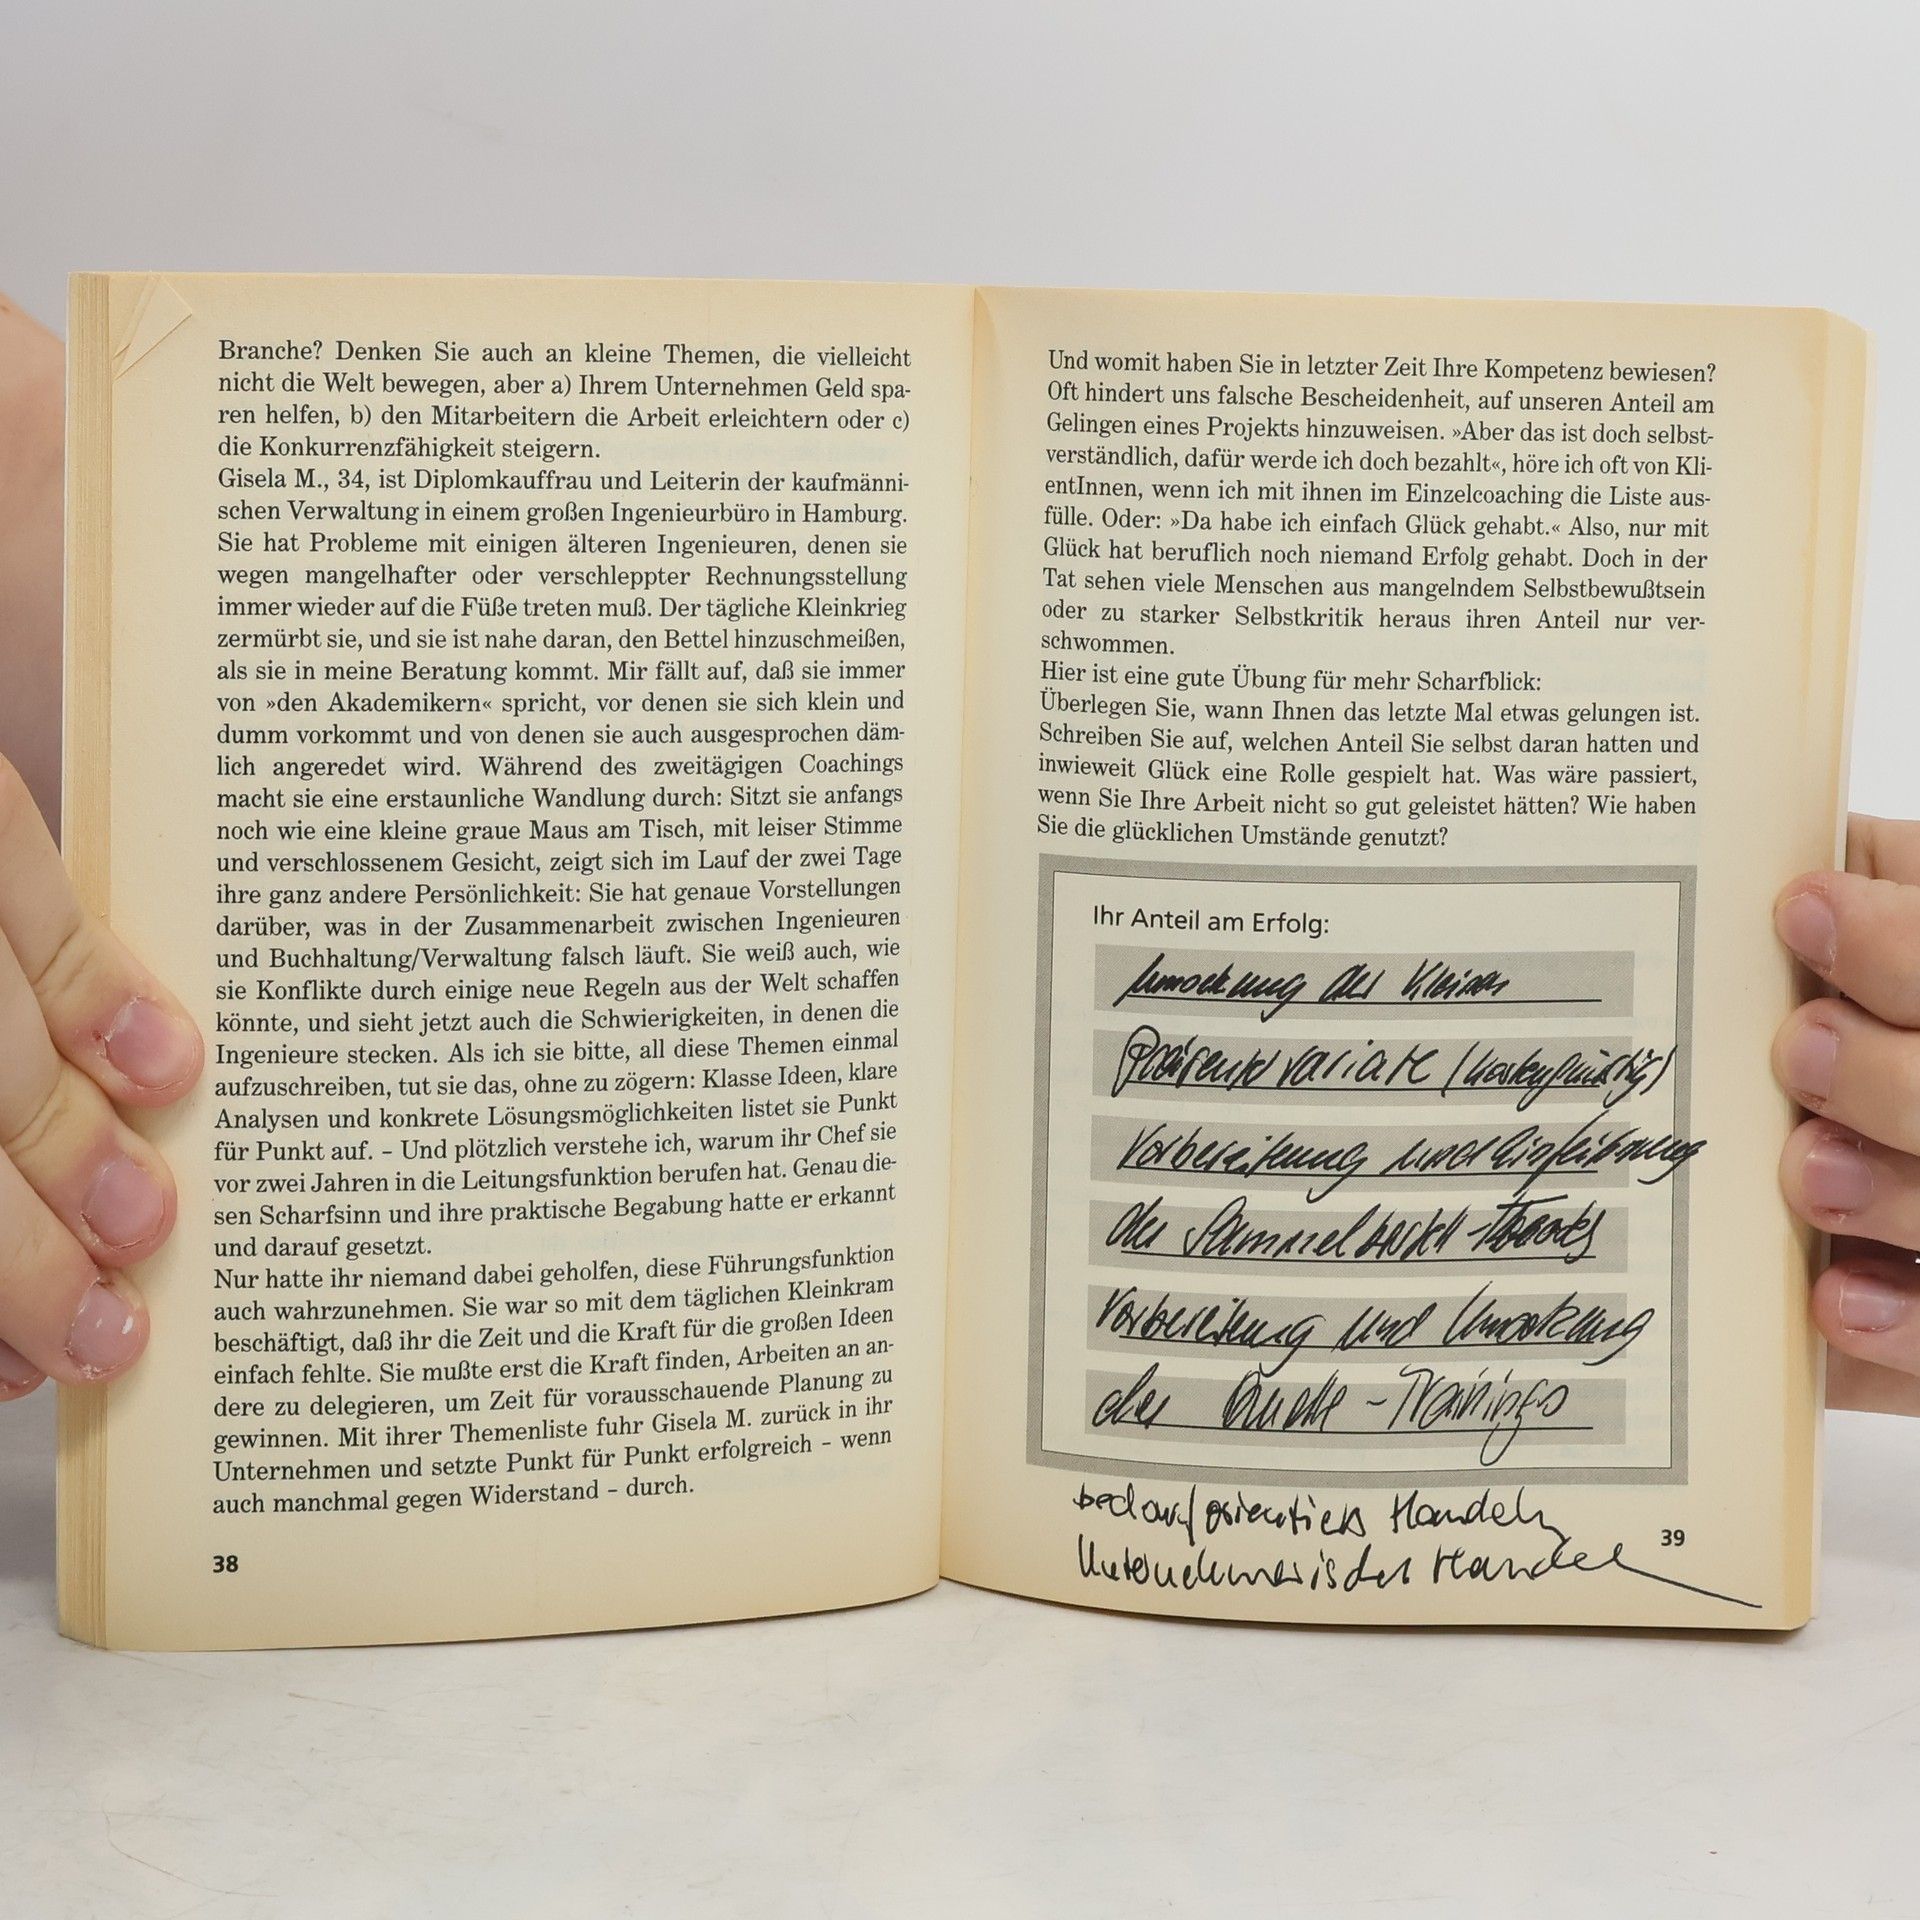 Branche? Denken Sie auch an kleine Themen, die vielleicht
nicht die Welt bewegen, aber a) Ihrem Unternehmen Geld spa-
ren helfen, b) den Mitarbeitern die Arbeit erleichtern oder c)
die Konkurrenzfähigkeit steigern.
Gisela M., 34, ist Diplomkauffrau und Leiterin der kaufmänni-
schen Verwaltung in einem großen Ingenieurbüro in Hamburg.
Sie hat Probleme mit einigen älteren Ingenieuren, denen sie
wegen mangelhafter oder verschleppter Rechnungsstellung
immer wieder auf die Füße treten muß. Der tägliche Kleinkrieg
zermürbt sie, und sie ist nahe daran, den Bettel hinzuschmeißen,
als sie in meine Beratung kommt. Mir fällt auf, daß sie immer
von »den Akademikern« spricht, vor denen sie sich klein und
dumm vorkommt und von denen sie auch ausgesprochen däm-
lich angeredet wird. Während des zweitägigen Coachings
macht sie eine erstaunliche Wandlung durch: Sitzt sie anfangs
noch wie eine kleine graue Maus am Tisch, mit leiser Stimme
und verschlossenem Gesicht, zeigt sich im Lauf der zwei Tage
ihre ganz andere Persönlichkeit: Sie hat genaue Vorstellungen
darüber, was in der Zusammenarbeit zwischen Ingenieuren
und Buchhaltung/Verwaltung falsch läuft. Sie weiß auch, wie
sie Konflikte durch einige neue Regeln aus der Welt schaffen
könnte, und sieht jetzt auch die Schwierigkeiten, in denen die
Ingenieure stecken. Als ich sie bitte, all diese Themen einmal
aufzuschreiben, tut sie das, ohne zu zögern: Klasse Ideen, klare
Analysen und konkrete Lösungsmöglichkeiten listet sie Punkt
für Punkt auf. – Und plötzlich verstehe ich, warum ihr Chef sie
vor zwei Jahren in die Leitungsfunktion berufen hat. Genau die-
sen Scharfsinn und ihre praktische Begabung hatte er erkannt
und darauf gesetzt.
Nur hatte ihr niemand dabei geholfen, diese Führungsfunktion
auch wahrzunehmen. Sie war so mit dem täglichen Kleinkram
beschäftigt, daß ihr die Zeit und die Kraft für die großen Ideen
einfach fehlte. Sie mußte erst die Kraft finden, Arbeiten an an-
dere zu delegieren, um Zeit für vorausschauende Planung zu
gewinnen. Mit ihrer Themenliste fuhr Gisela M. zurück in ihr
Unternehmen und setzte Punkt für Punkt erfolgreich – wenn
auch manchmal gegen Widerstand – durch.
38
Und womit haben Sie in letzter Zeit Ihre Kompetenz bewiesen?
Oft hindert uns falsche Bescheidenheit, auf unseren Anteil am
Gelingen eines Projekts hinzuweisen. »Aber das ist doch selbst-
verständlich, dafür werde ich doch bezahlt«, höre ich oft von Kli-
entInnen, wenn ich mit ihnen im Einzelcoaching die Liste aus-
fülle. Oder: »Da habe ich einfach Glück gehabt.« Also, nur mit
Glück hat beruflich noch niemand Erfolg gehabt. Doch in der
Tat sehen viele Menschen aus mangelndem Selbstbewußtsein
oder zu starker Selbstkritik heraus ihren Anteil nur ver-
schwommen.
Hier ist eine gute Übung für mehr Scharfblick:
Überlegen Sie, wann Ihnen das letzte Mal etwas gelungen ist.
Schreiben Sie auf, welchen Anteil Sie selbst daran hatten und
inwieweit Glück eine Rolle gespielt hat. Was wäre passiert,
wenn Sie Ihre Arbeit nicht so gut geleistet hätten? Wie haben
Sie die glücklichen Umstände genutzt?
Ihr Anteil am Erfolg:
Umsetzung der kleinen
variante (kostengünstig)
Vorbereitung und Einführung
der
Vorbereitung und Umsetzung
der -Trainings
bedarfsorientiertes Handeln
Unternehmerisches Handeln
39